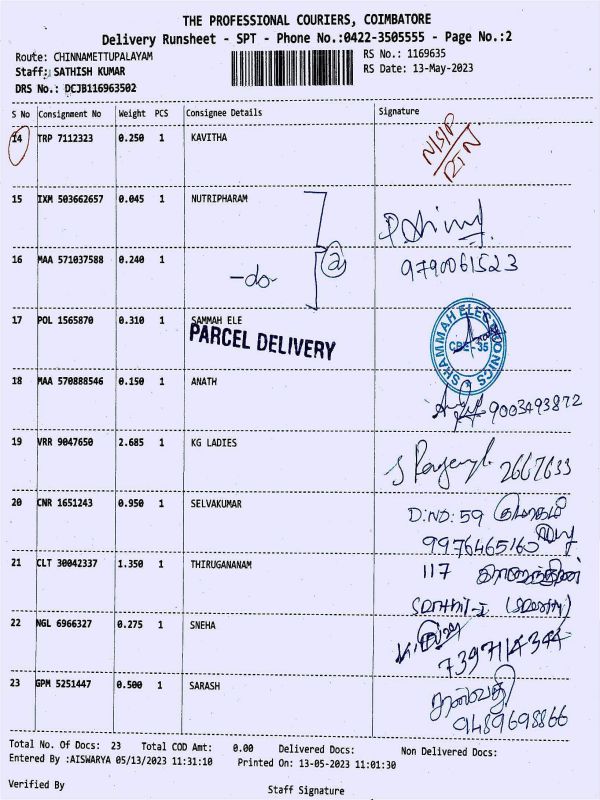 THE PROFESSIONAL COURIERS, COIMBATORE
Delivery Runsheet - SPT - Phone No.:0422-3505555 - Page No.:2
Route: CHINNAMETTUPALAYAM
RS No.: 1169635
Staff: SATHISH KUMAR
RS Date: 13-May-2023
DRS No.: DCJB116963502
S No Consignment No Weight PCS Consignee Details Signature
14 TRP 7112323 0.250 1 KAVITHA
15 IXM 503662657 0.045 1 NUTRIPHARAM
16 MAA 571037588 0.240 1
-do- 9790061523
17 POL 1565870 0.310 1 SAMMAH ELE
PARCEL DELIVERY
SHAMMAH ELECTRONICS
CBE-35
18 MAA 570888546 0.150 1 ANATH
9003493872
19 VRR 9047650 2.685 1 KG LADIES
2667633
20 CNR 1651243 0.950 1 SELVAKUMAR D:NO: 59
9976465160
21 CLT 30042337 1.350 1 THIRUGANANAM 117
22 NGL 6966327 0.275 1 SNEHA
7397114344
23 GPM 5251447 0.500 1 SARASH
9489698866
Total No. Of Docs: 23 Total COD Amt: 0.00 Delivered Docs: Non Delivered Docs:
Entered By :AISWARYA 05/13/2023 11:31:10 Printed On: 13-05-2023 11:01:30
Verified By
Staff Signature